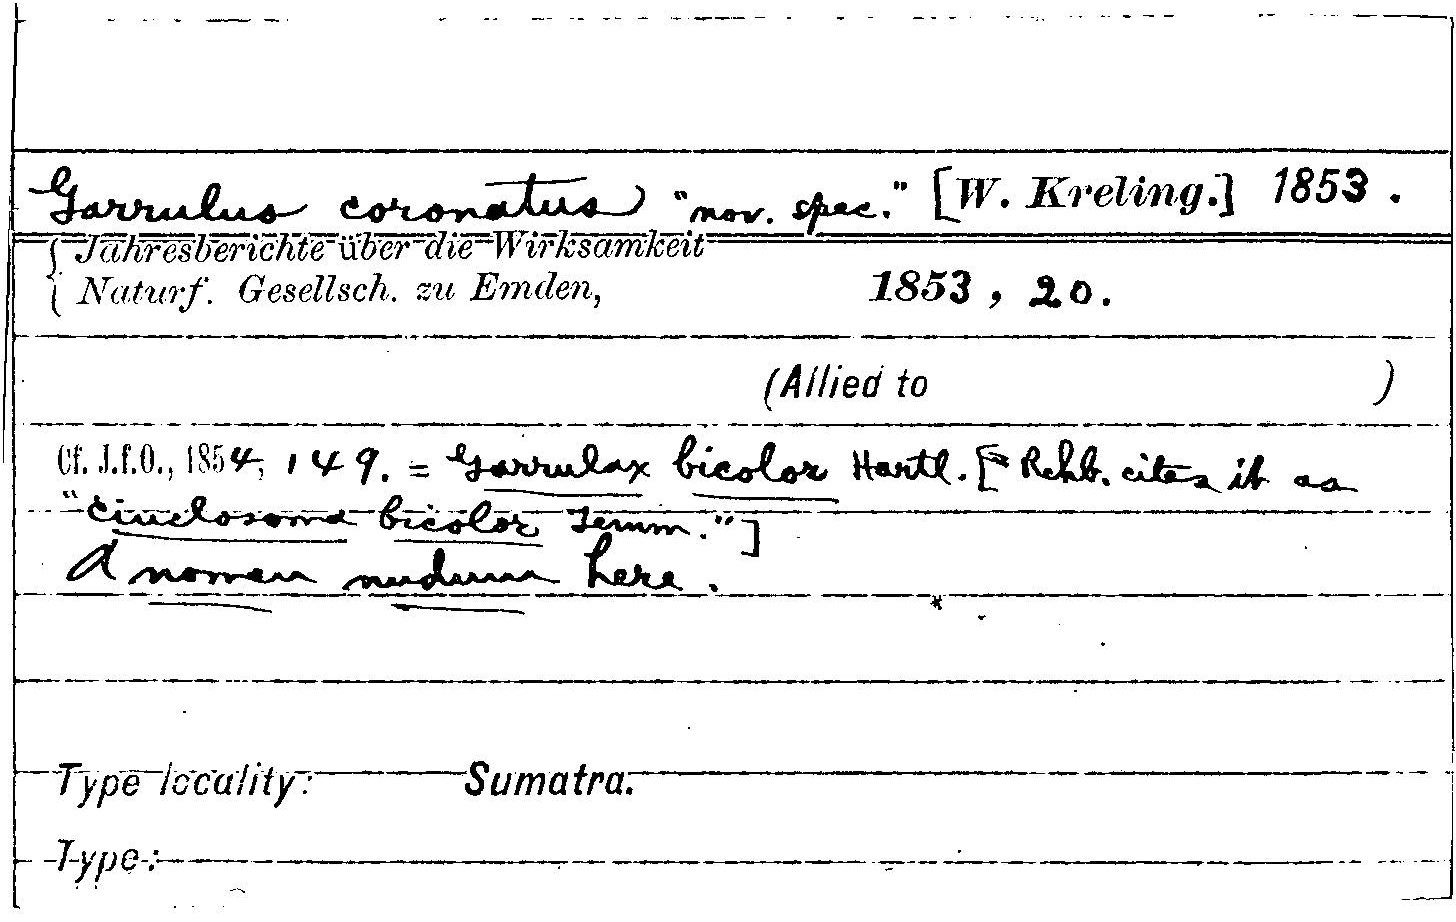 Garrulus coronatus "nov. spec." [W. Kreling.] 1853.
Jahresberichte über die Wirksamkeit
Naturf. Gesellsch. zu Emden, 1853, 20.
(Allied to )
Cf. J.f.O., 1854, 149. = Garrulax bicolor Hartl. [Rchb. cites it as
"Cinclosoma bicolor Temm."]
A nomen nudum here.
Type locality: Sumatra.
Type: